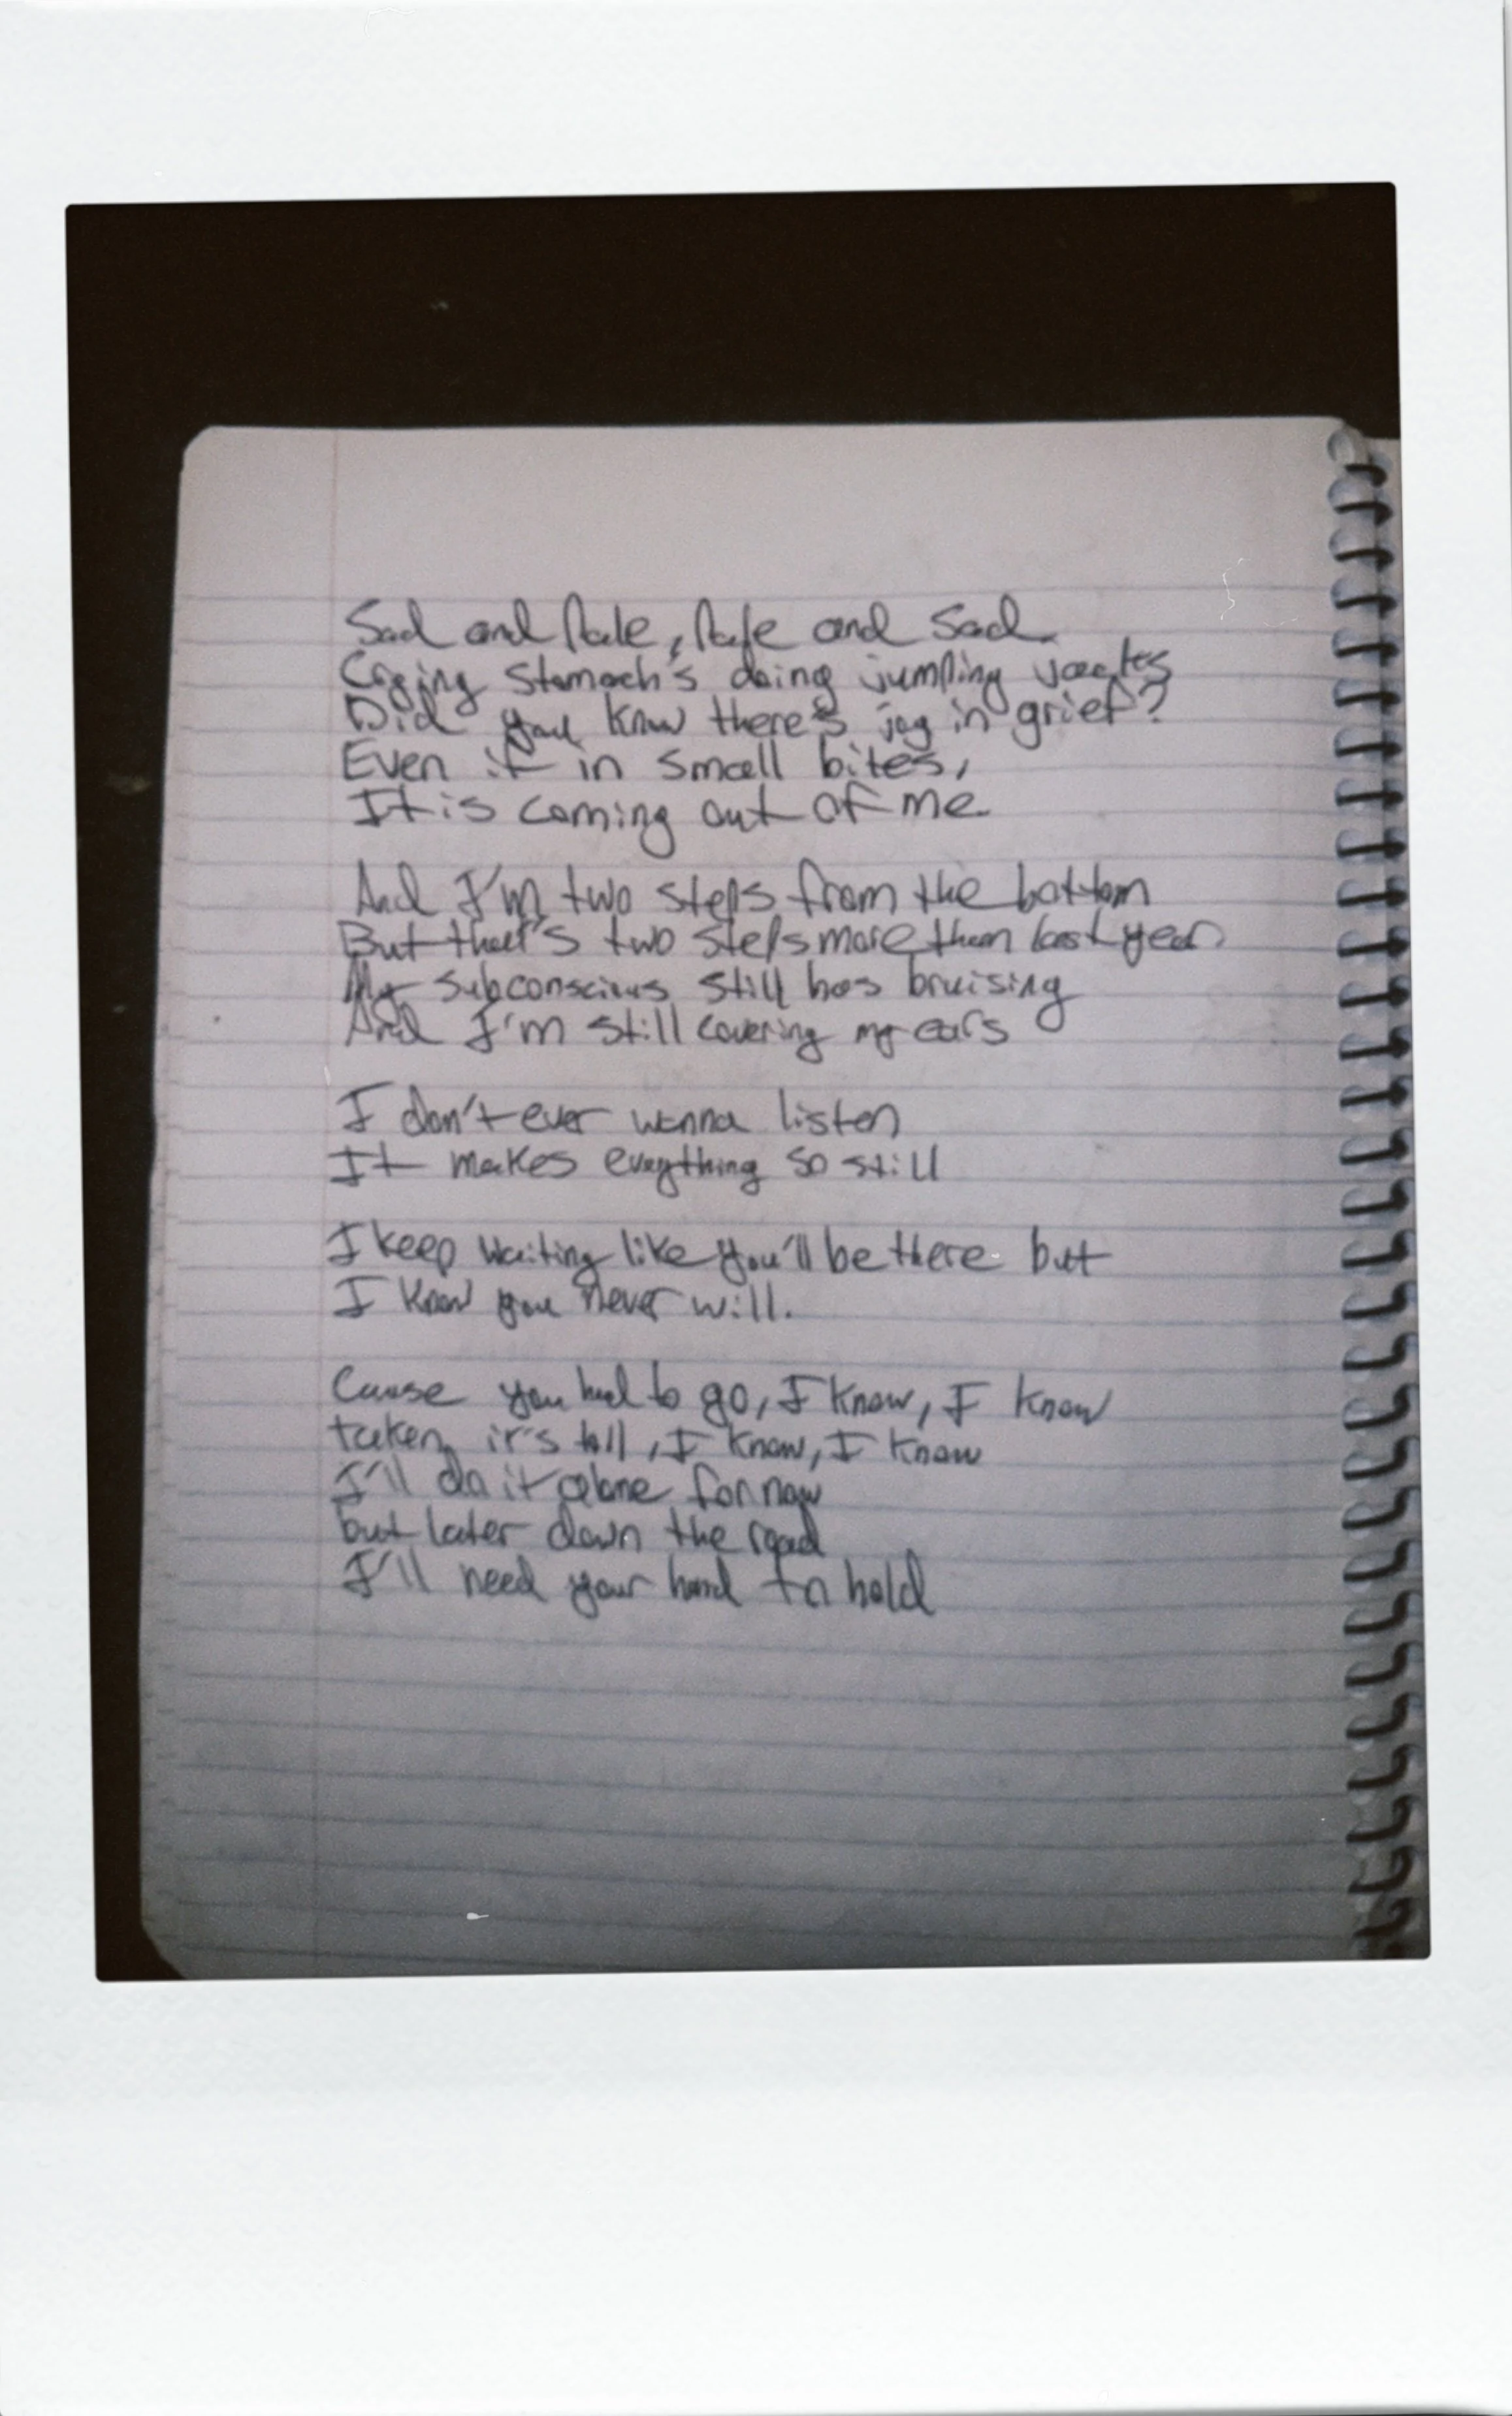 Sad and Pale, Pale and Sad.
Crying Stomach's doing jumping jacks
Did you know there's joy in grief?
Even if in small bites,
It is coming out of me.
And I'm two steps from the bottom
But that's two steps more than last year
My subconscious still has bruising
And I'm still covering my ears
I don't ever wanna listen
It makes everything so still
I keep waiting like you'll be there but
I know you never will.
Cause you had to go, I know, I know
taken it's toll, I know, I know
I'll do it alone for now
but later down the road
I'll need your hand to hold